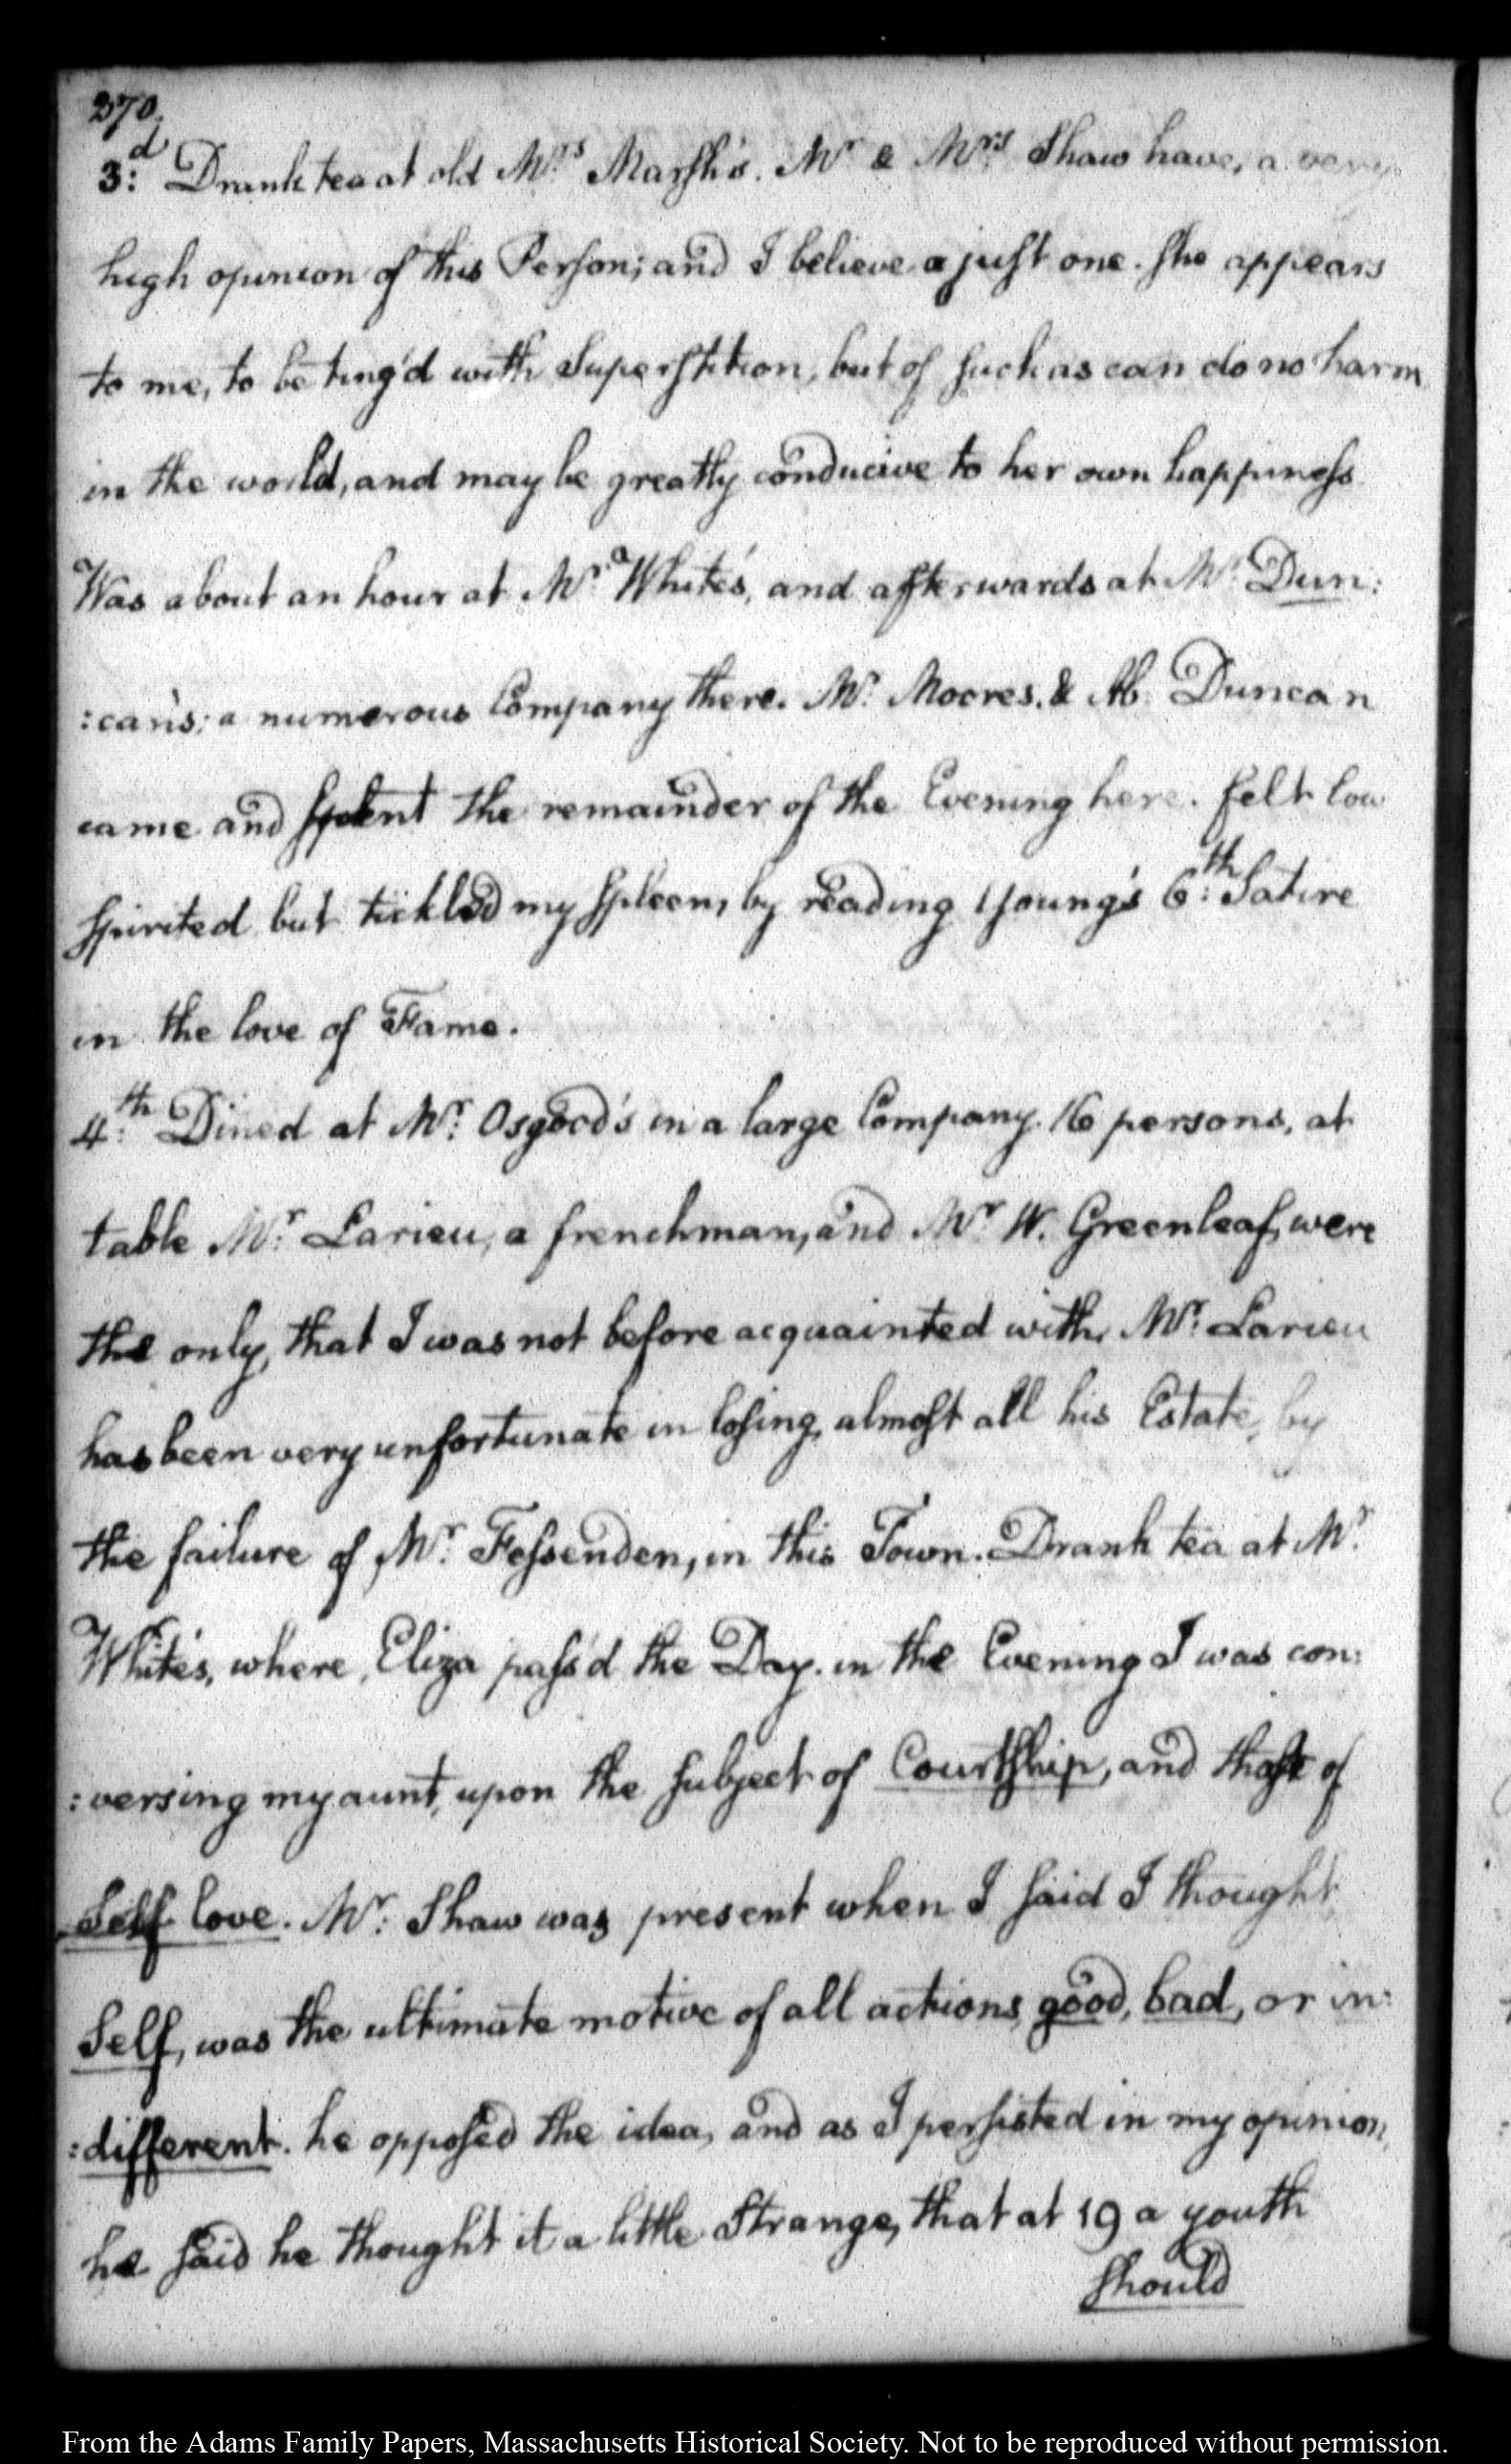 270.
3:d Drank tea at old Mrs Marsh's. Mr & Mrs Shaw have, a very
high opinion of this Person; and I believe a just one. She appears
to me, to be ting'd with Superstition, but of such as can do no harm
in the world, and may be greatly conducive to her own happiness
Was about an hour at Mr. White's, and afterwards at Mr. Dun:
:can's; a numerous Company there. Mr. Moores. & Duncan
came and spent the remainder of the Evening here. felt low
spirited but tickled my spleen, by reading Young's 6:th Satire
in the love of Fame.
4:th Dined at Mr. Osgood's in a large Company. 16 persons, at
table Mr. Larieu, a frenchman, and Mr W. Greenleaf, were
the only, that I was not before acquainted with, Mr. Larieu
has been very unfortunate in losing, almost all his Estate, by
the failure of Mr. Fessenden, in this Town. Drank tea at Mr.
White's, where, Eliza pass'd the Day. in the Evening I was con:
:versing my aunt, upon the subject of Courtship, and that of
Self love. Mr: Shaw was present when I said I thought
Self, was the ultimate motive of all actions, good, bad, or in:
:different. he opposed the idea, and as I persisted in my opinion,
he said he thought it a little Strange, that at 19 a youth
should
From the Adams Family Papers, Massachusetts Historical Society. Not to be reproduced without permission.